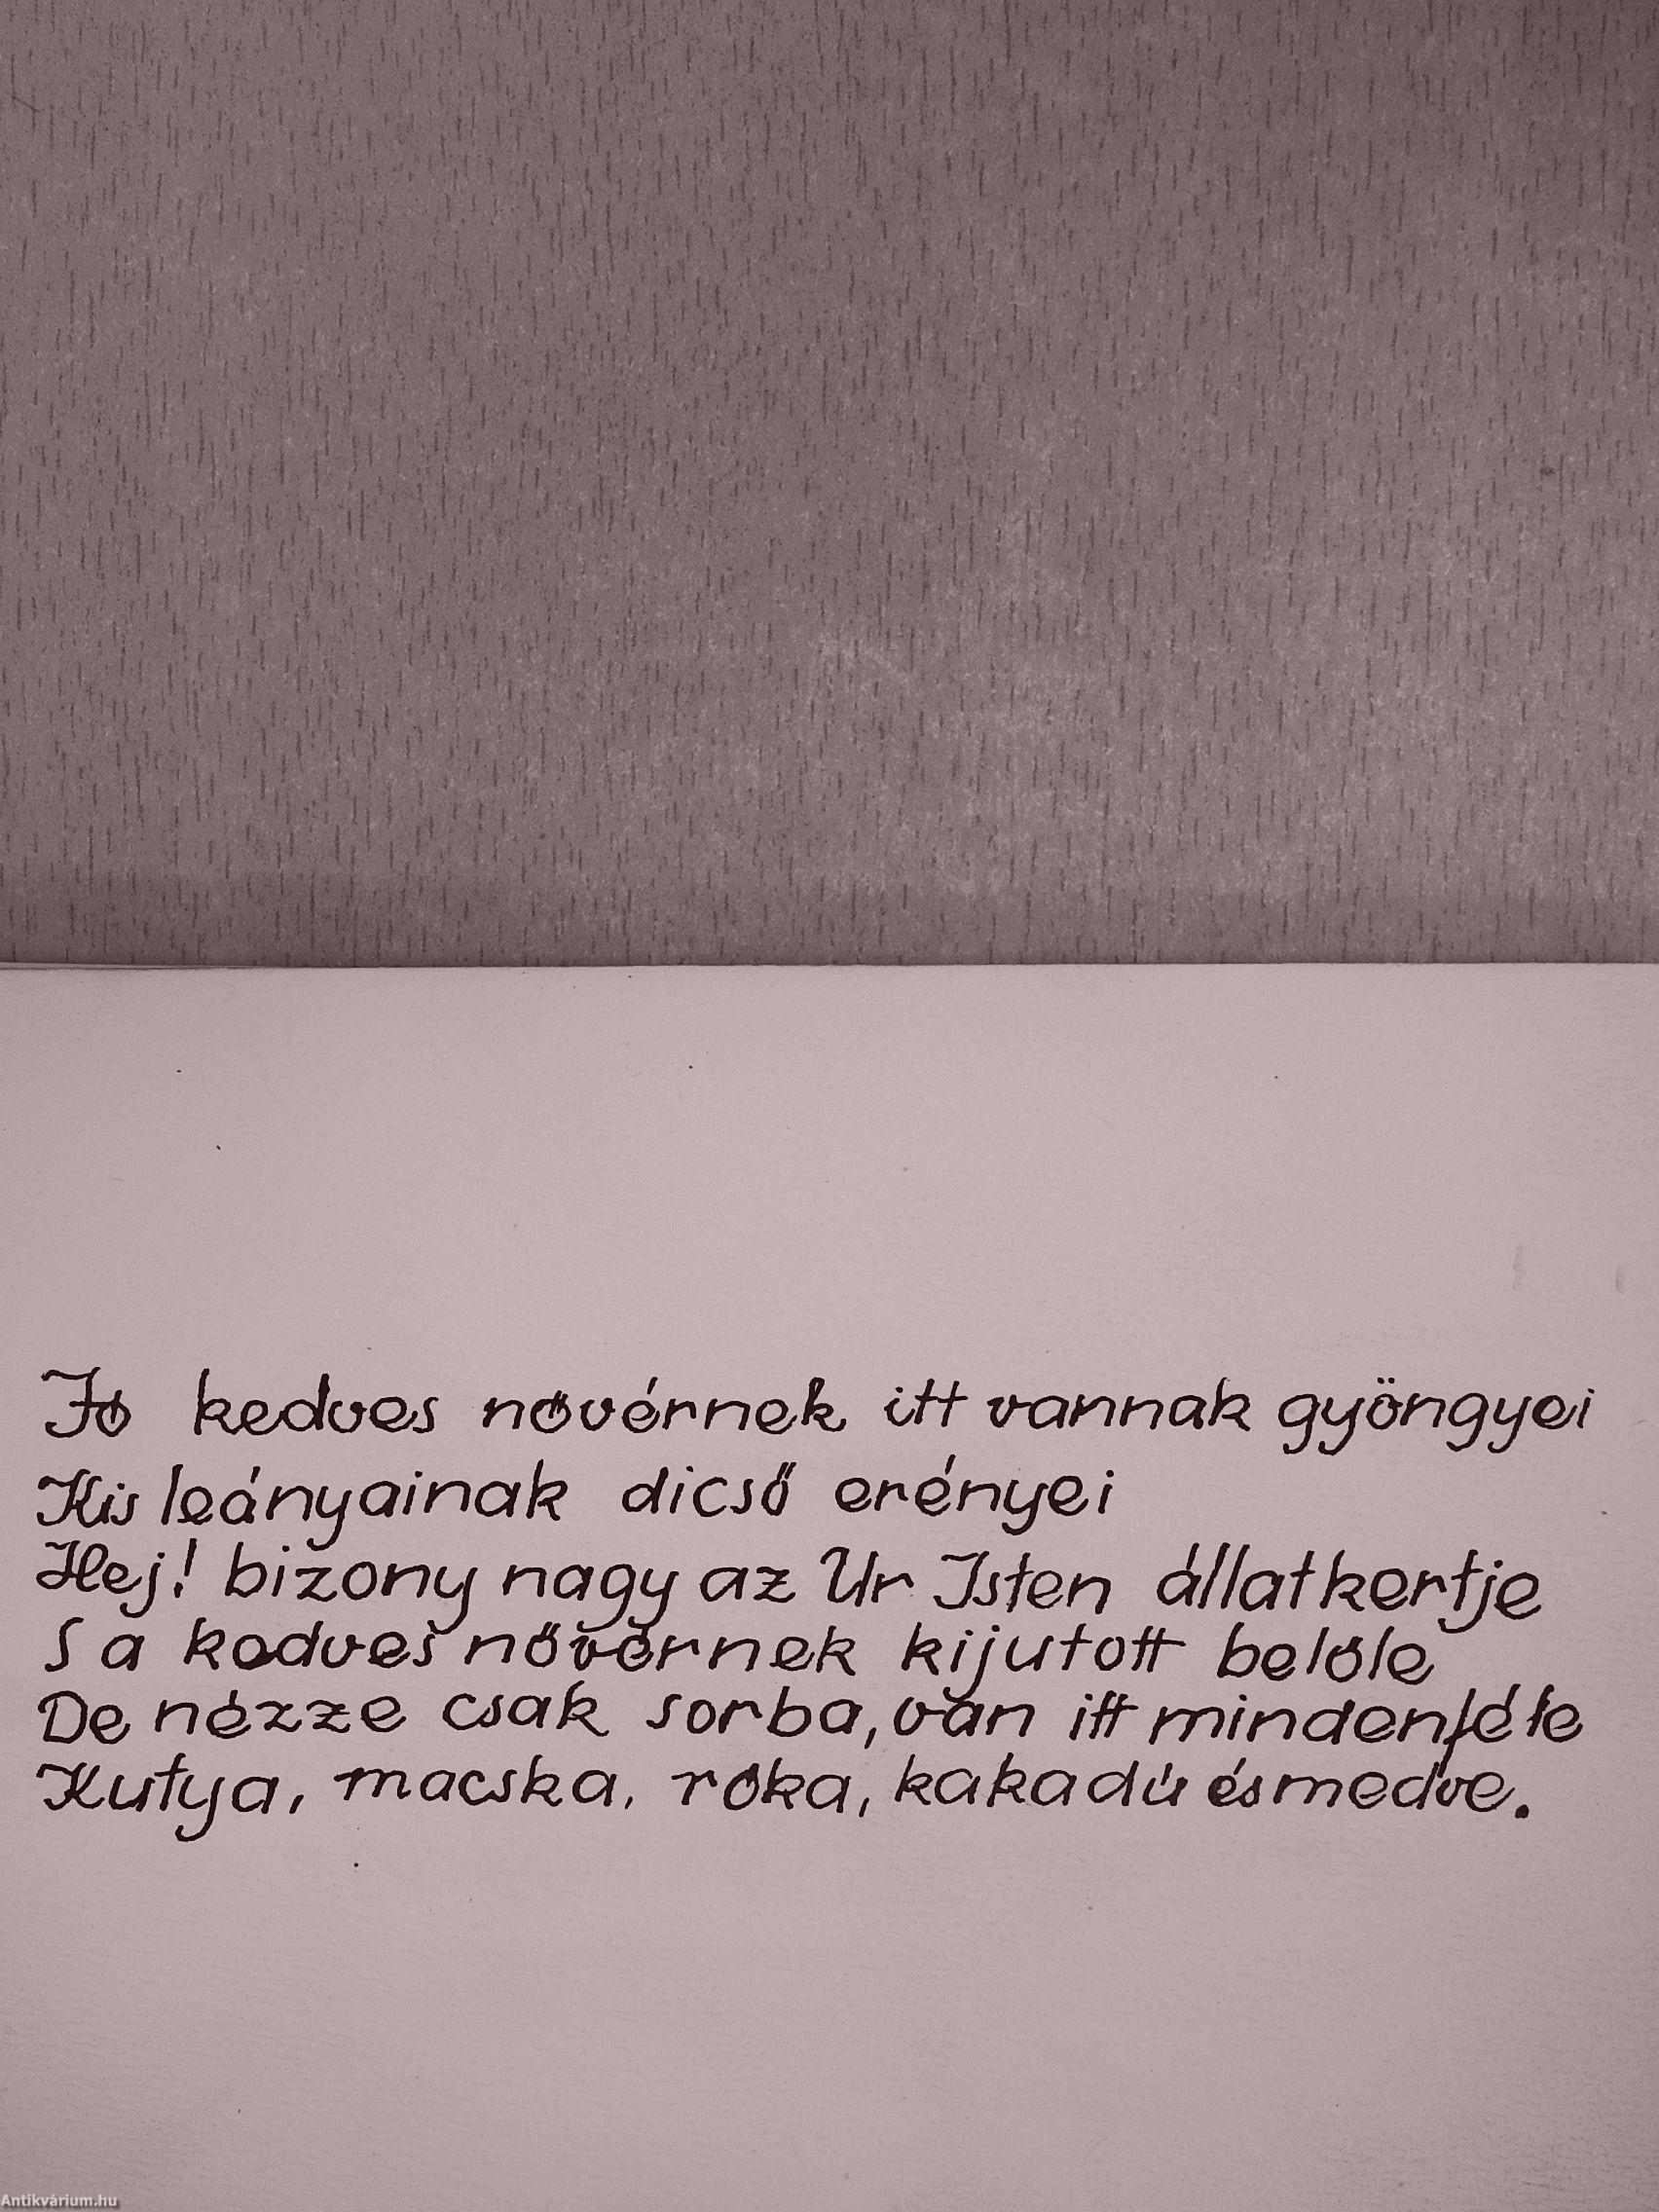 Jó kedves növérnek itt vannak gyöngyei
Kis leányainak dicső erényei
Hej! bizony nagy az Ur Isten állatkertje
S a kedves nővérnek kijutott belőle
De nézze csak sorba, van itt mindenféle
Kutya, macska, róka, kakadú és medve.
Antikvárium.hu